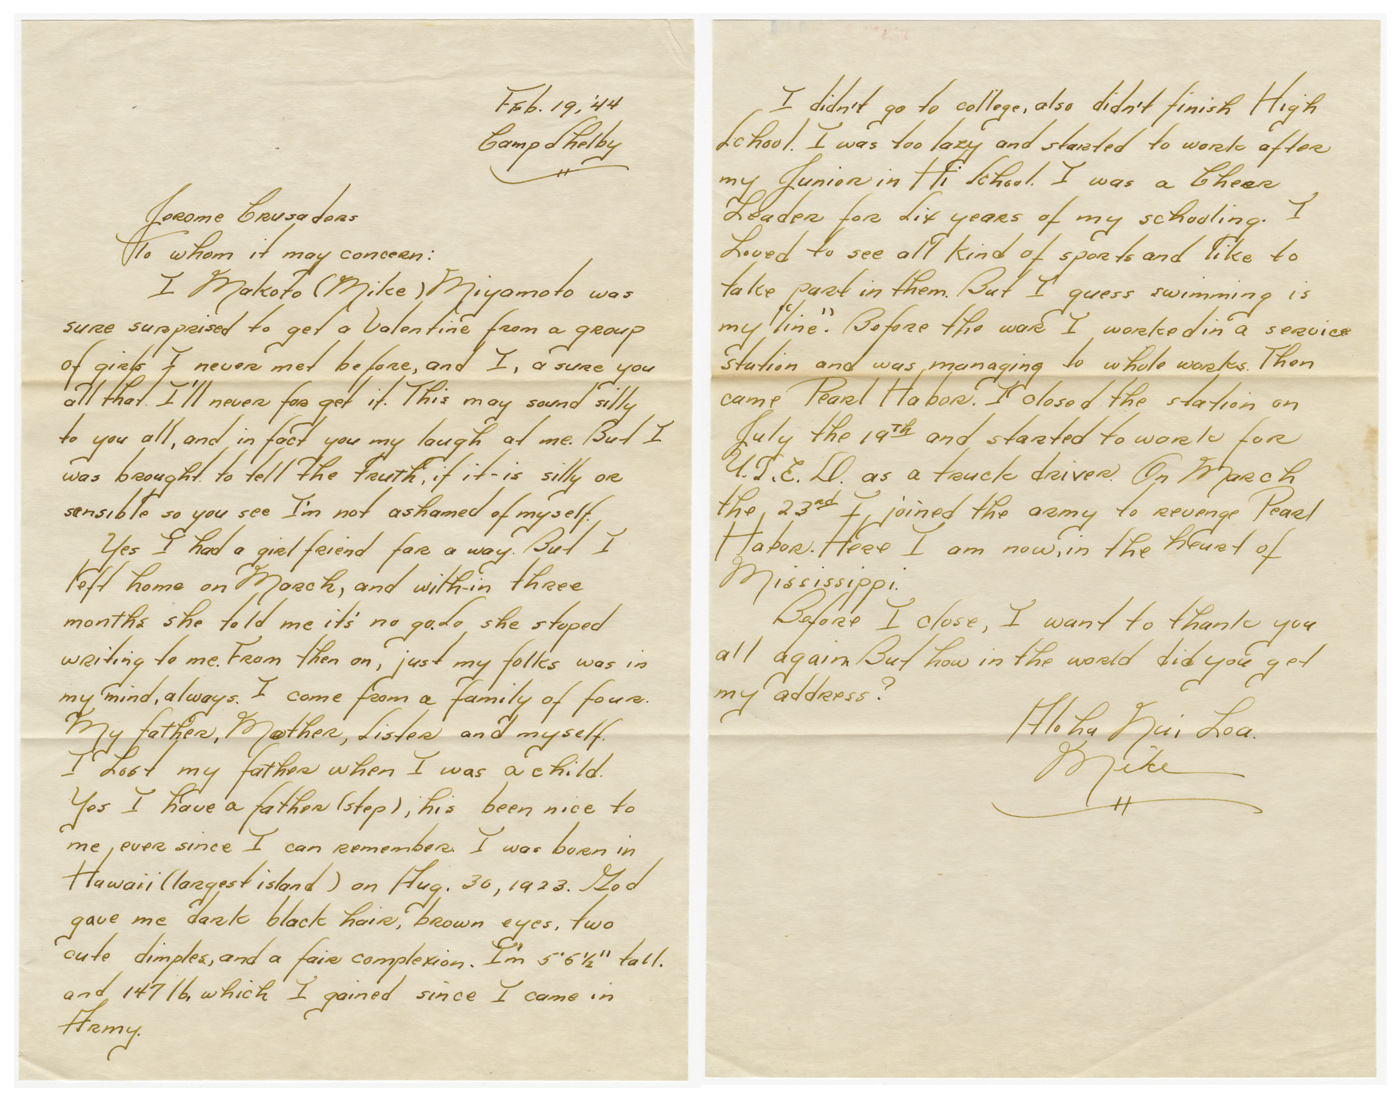 Feb. 19, '44
Camp Shelby
Jerome Crusadors
To whom it may concern:
I Makoto (Mike) Miyamoto was
sure surprised to get a Valentine from a group
of girls I never met before, and I, asure you
all that I'll never forget it. This may sound silly
to you all, and in fact you my laugh at me. But I
was brought to tell the truth, if it-is silly or
sensible so you see I'm not ashamed of myself.
Yes I had a girl friend far a way. But I
left home on March, and with-in three
months she told me it's no go. So she stoped
writing to me. From then on, just my folks was in
my mind, always. I come from a family of four.
My father, Mother, Sister and myself.
I Lost my father when I was a child.
Yes I have a father (step), his been nice to
me, ever since I can remember. I was born in
Hawaii (largest island) on Aug. 30, 1923. God
gave me dark black hair, brown eyes, two
cute dimples, and a fair complexion. I'm 5'6½" tall.
and 147 lb, which I gained since I came in
Army.
I didn't go to college, also didn't finish High
School. I was too lazy and started to work after
my Junior in Hi School. I was a Cheer
Leader for Six years of my schooling. I
Loved to see all kind of sports and like to
take part in them. But I guess swimming is
my "line". Before the war I worked in a service
station and was managing to whole works. Then
came Pearl Habor. I closed the station on
July the 19th and started to work for
U.S.E.D. as a truck driver. On March
the, 23rd I, joined the army to revenge Pearl
Habor. Here I am now, in the heart of
Mississippi.
Before I close, I want to thank you
all again. But how in the world did you get
my address?
Aloha Nui Loa.
Mike